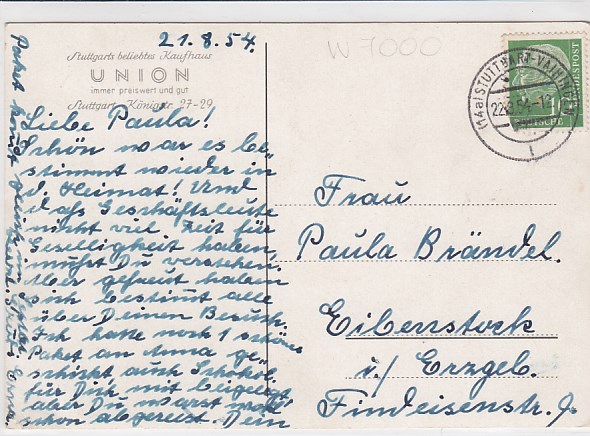 21.8.54.
W 7000
Stuttgarts beliebtes Kaufhaus
UNION
immer preiswert und gut
Stuttgart, Königstr. 27-29
Liebe Paula!
Schön war es be
stimmt wieder in
d. Heimat! Und
daß Geschäftsleute
nicht viel Zeit für
Geselligkeit haben,
mußt Du verstehen.
Aber gefreut haben
sich bestimmt alle
über Deinen Besuch.
Ich hatte noch 1 schönes
Paket an Anna ge-
schickt auch Schokol.
für Dich mit beigelegt,
aber Du warst wohl
schon abgereist. Dein
Paket kommt
(14a) STUTTGART-VAIHINGEN
22.8.54.-12
DEUTSCHE BUNDESPOST
10
Frau
Paula Brändel.
Eibenstock
i./ Erzgeb.
Findeisenstr. 9.